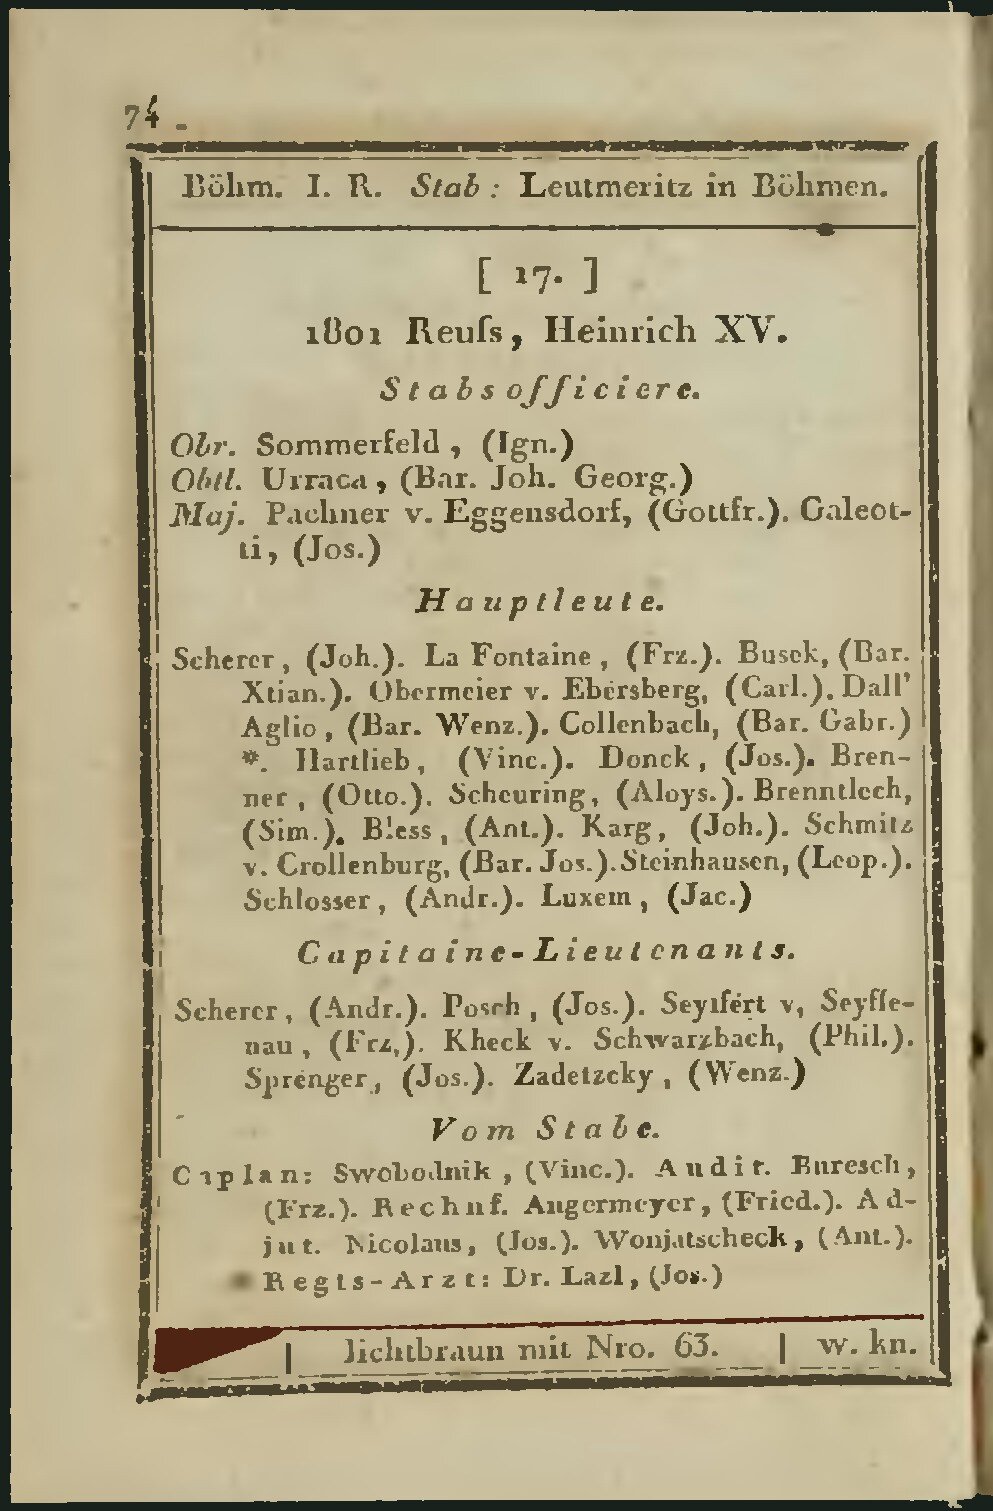 74
Böhm. I. R. Stab: Leutmeritz in Böhmen.
[ 17. ]
1801 Reuſs, Heinrich XV.
Stabsofficiere.
Obr. Sommerfeld, (Ign.)
Obtl. Urraca, (Bar. Joh. Georg.)
Maj. Pachner v. Eggensdorf, (Gottfr.). Galeot-
ti, (Jos.)
Hauptleute.
Scherer, (Joh.). La Fontaine, (Frz.). Buseck, (Bar.
Xtian.). Obermeier v. Ebersberg, (Carl.). Dall'
Aglio, (Bar. Wenz.). Collenbach, (Bar. Gabr.)
*. Hartlieb, (Vinc.). Donck, (Jos.). Bren-
ner, (Otto.). Scheuring, (Aloys.). Brenntlech,
(Sim.). Bless, (Ant.). Karg, (Joh.). Schmitz
v. Crollenburg, (Bar. Jos.). Steinhausen, (Leop.).
Schlosser, (Andr.). Luxem, (Jac.)
Capitaine-Lieutenants.
Scherer, (Andr.). Posch, (Jos.). Seyffert v, Seyffe-
nau, (Frz.). Kheck v. Schwarzbach, (Phil.).
Sprenger, (Jos.). Zadetzcky, (Wenz.)
Vom Stabe.
Caplan: Swobodnik, (Vinc.). Audit. Buresch,
(Frz.). Rechnf. Angermeyer, (Fried.). Ad-
jut. Nicolaus, (Jos.). Wonjatscheck, (Ant.).
Regts-Arzt: Dr. Lazl, (Jos.)
lichtbraun mit Nro. 63. | w. kn.